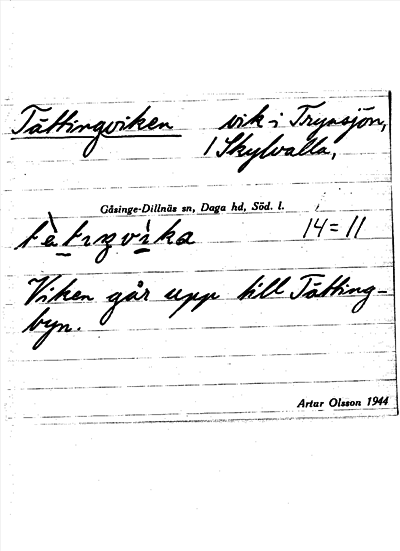 Tättingviken vik i Trynsjön,
1 Skylvalla,
Gåsinge-Dillnäs sn, Daga hd, Söd. l.
14=11
Viken går upp till Tätting-
byn.
Artur Olsson 1944